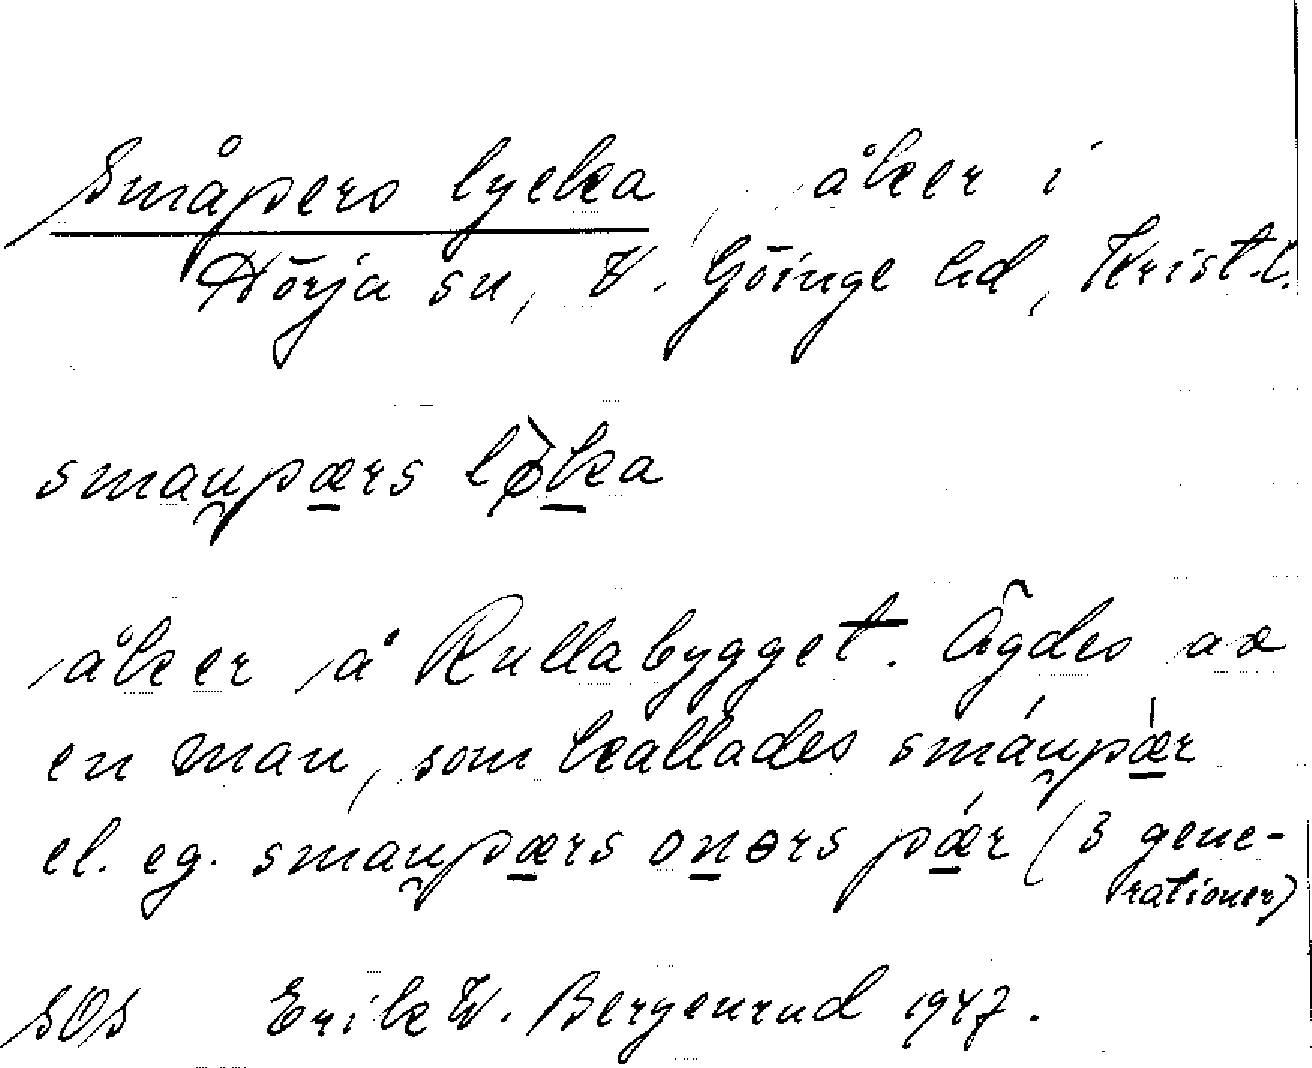 Småpers lycka, åker i
Nörja sn, V. Göinge hd, Krist.l.
smaupærs lø̀ka
åker å Rullabygget. Ägdes av
en man, som kallades smáupǽr
el. eg. smaupærs onərs pǽr (3 gene-
rationer)
SOS Erik W. Bergenrud 1947.